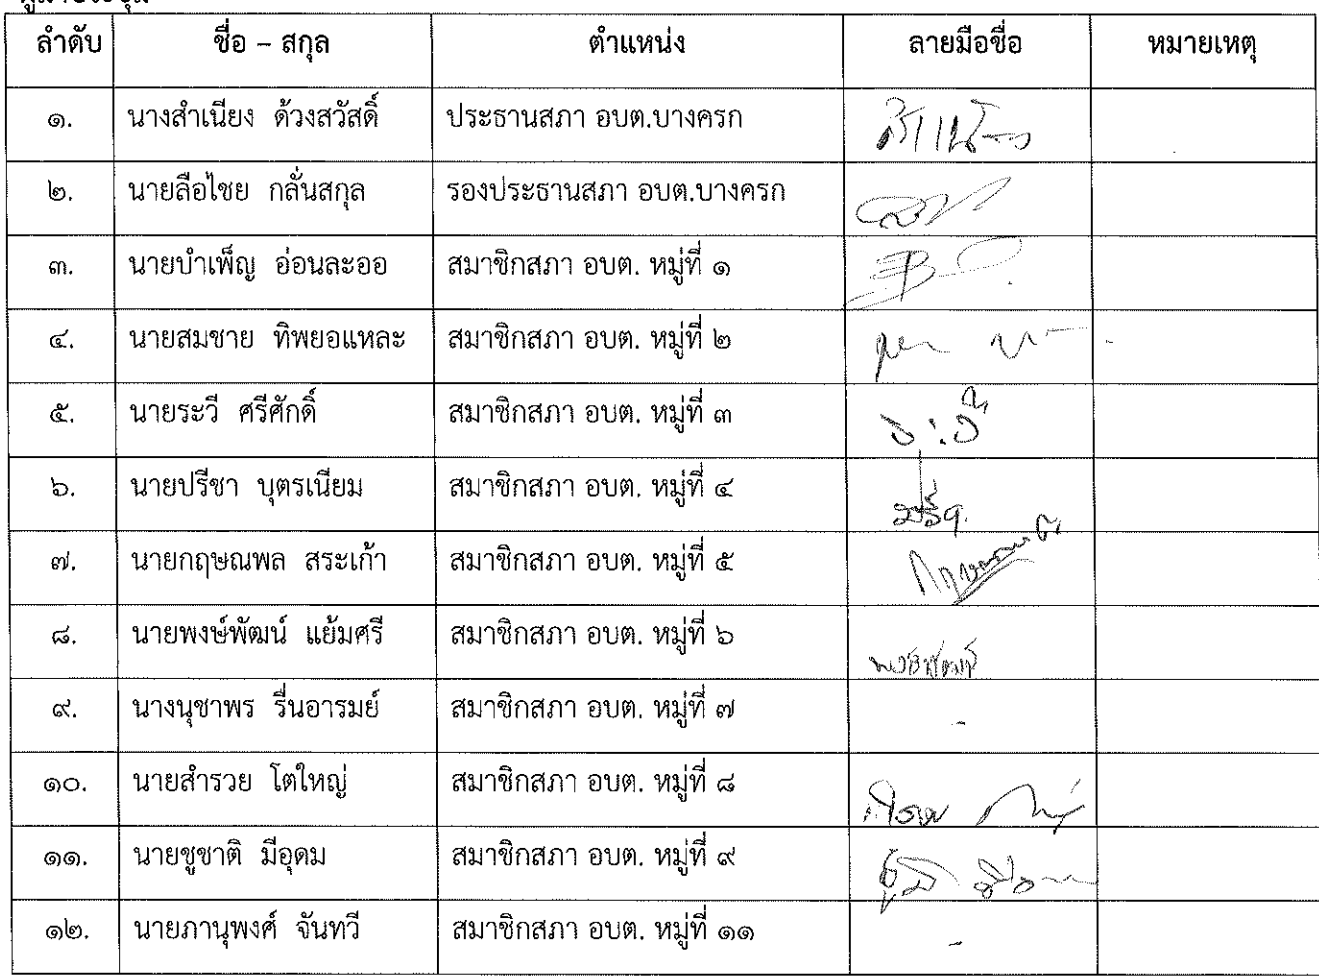 ลำดับ ชื่อ – สกุล ตำแหน่ง ลายมือชื่อ หมายเหตุ
๑. นางสำเนียง ด้วงสวัสดิ์ ประธานสภา อบต.บางครก
๒. นายลือไชย กลั่นสกุล รองประธานสภา อบต.บางครก
๓. นายบำเพ็ญ อ่อนละออ สมาชิกสภา อบต. หมู่ที่ ๑
๔. นายสมชาย ทิพยอแหละ สมาชิกสภา อบต. หมู่ที่ ๒
๕. นายระวี ศรีศักดิ์ สมาชิกสภา อบต. หมู่ที่ ๓
๖. นายปรีชา บุตรเนียม สมาชิกสภา อบต. หมู่ที่ ๔
๗. นายกฤษณพล สระเก้า สมาชิกสภา อบต. หมู่ที่ ๕
๘. นายพงษ์พัฒน์ แย้มศรี สมาชิกสภา อบต. หมู่ที่ ๖
๙. นางนุชาพร รื่นอารมย์ สมาชิกสภา อบต. หมู่ที่ ๗ -
๑๐. นายสำรวย โตใหญ่ สมาชิกสภา อบต. หมู่ที่ ๘
๑๑. นายชูชาติ มีอุดม สมาชิกสภา อบต. หมู่ที่ ๙
๑๒. นายภานุพงศ์ จันทวี สมาชิกสภา อบต. หมู่ที่ ๑๑ -